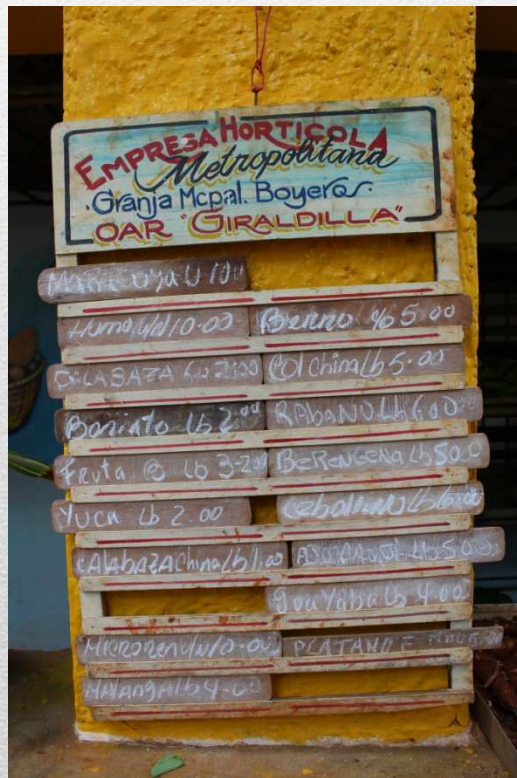 EMPRESA HORTICOLA
Metropolitana
Granja Mcpal. Boyeros.
OAR "GIRALDILLA"
U 10
Humo U/ 10.00
Berro 5.00
Lb 2.00
Col China Lb 5.00
Boniato Lb 2.00
RABANO Lb 6.00
Fruta Lb 3-2.00
BERENGENA Lb 5.00
Yuca Lb 2.00
Cebollino Lb
CALABAZA China Lb 1.00
Lb 5.00
Guayaba Lb 4.00
PLATANO
MALANGA Lb 4.00